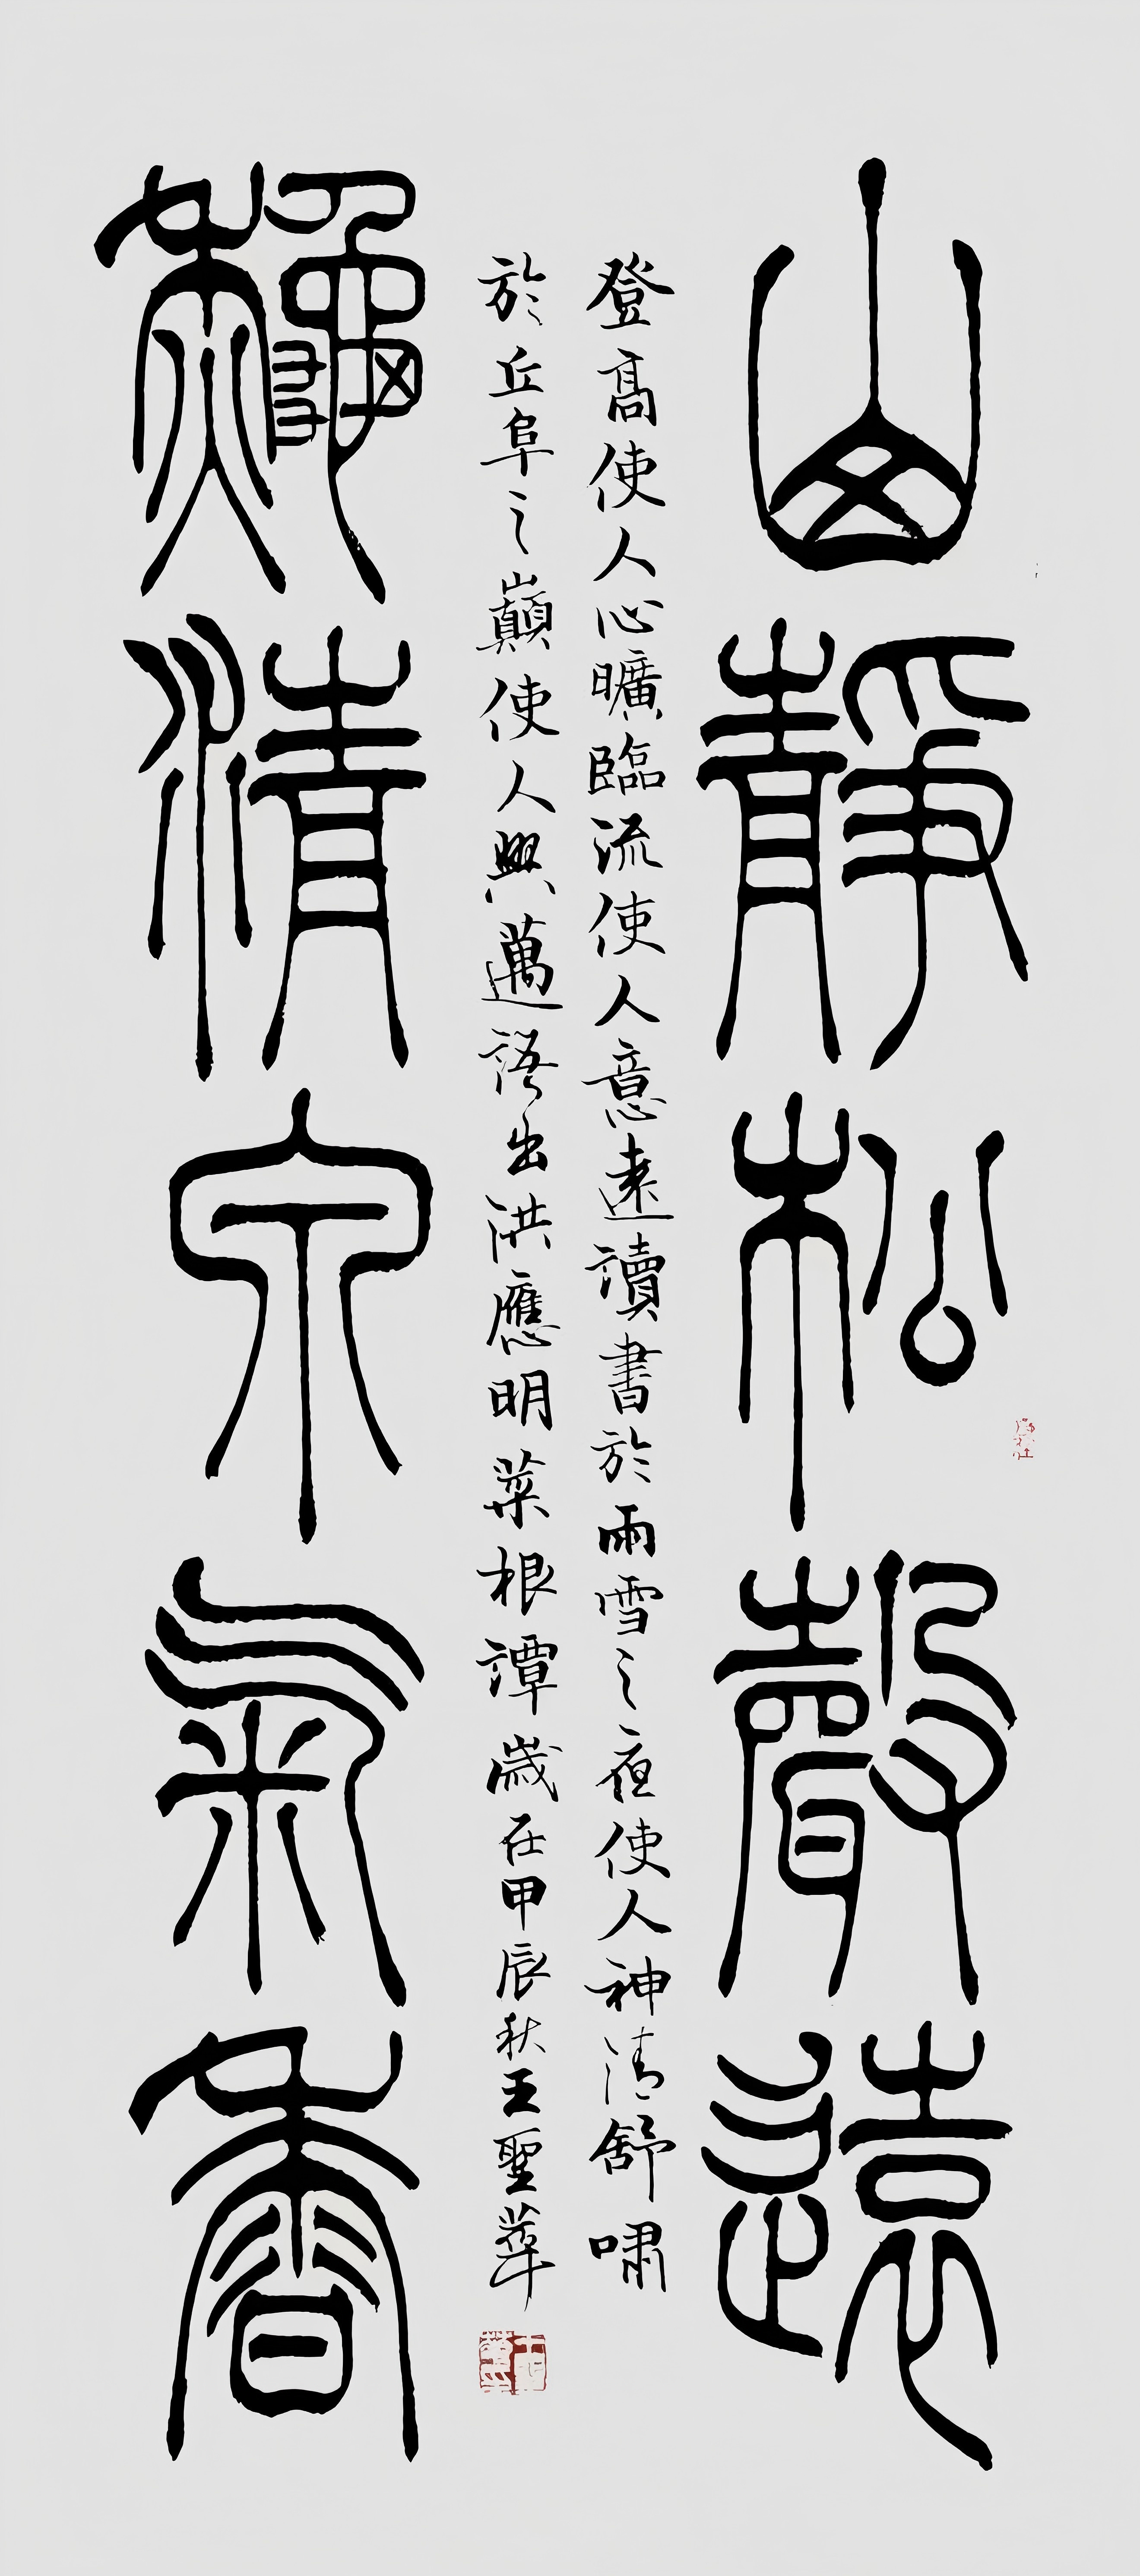 山靜松聲遠
登高使人心曠臨流使人意遠讀書於雨雪之夜使人神清舒嘯
於丘阜之巔使人興邁語出洪應明菜根譚歲在甲辰秋王聖華
龝清泉氣香